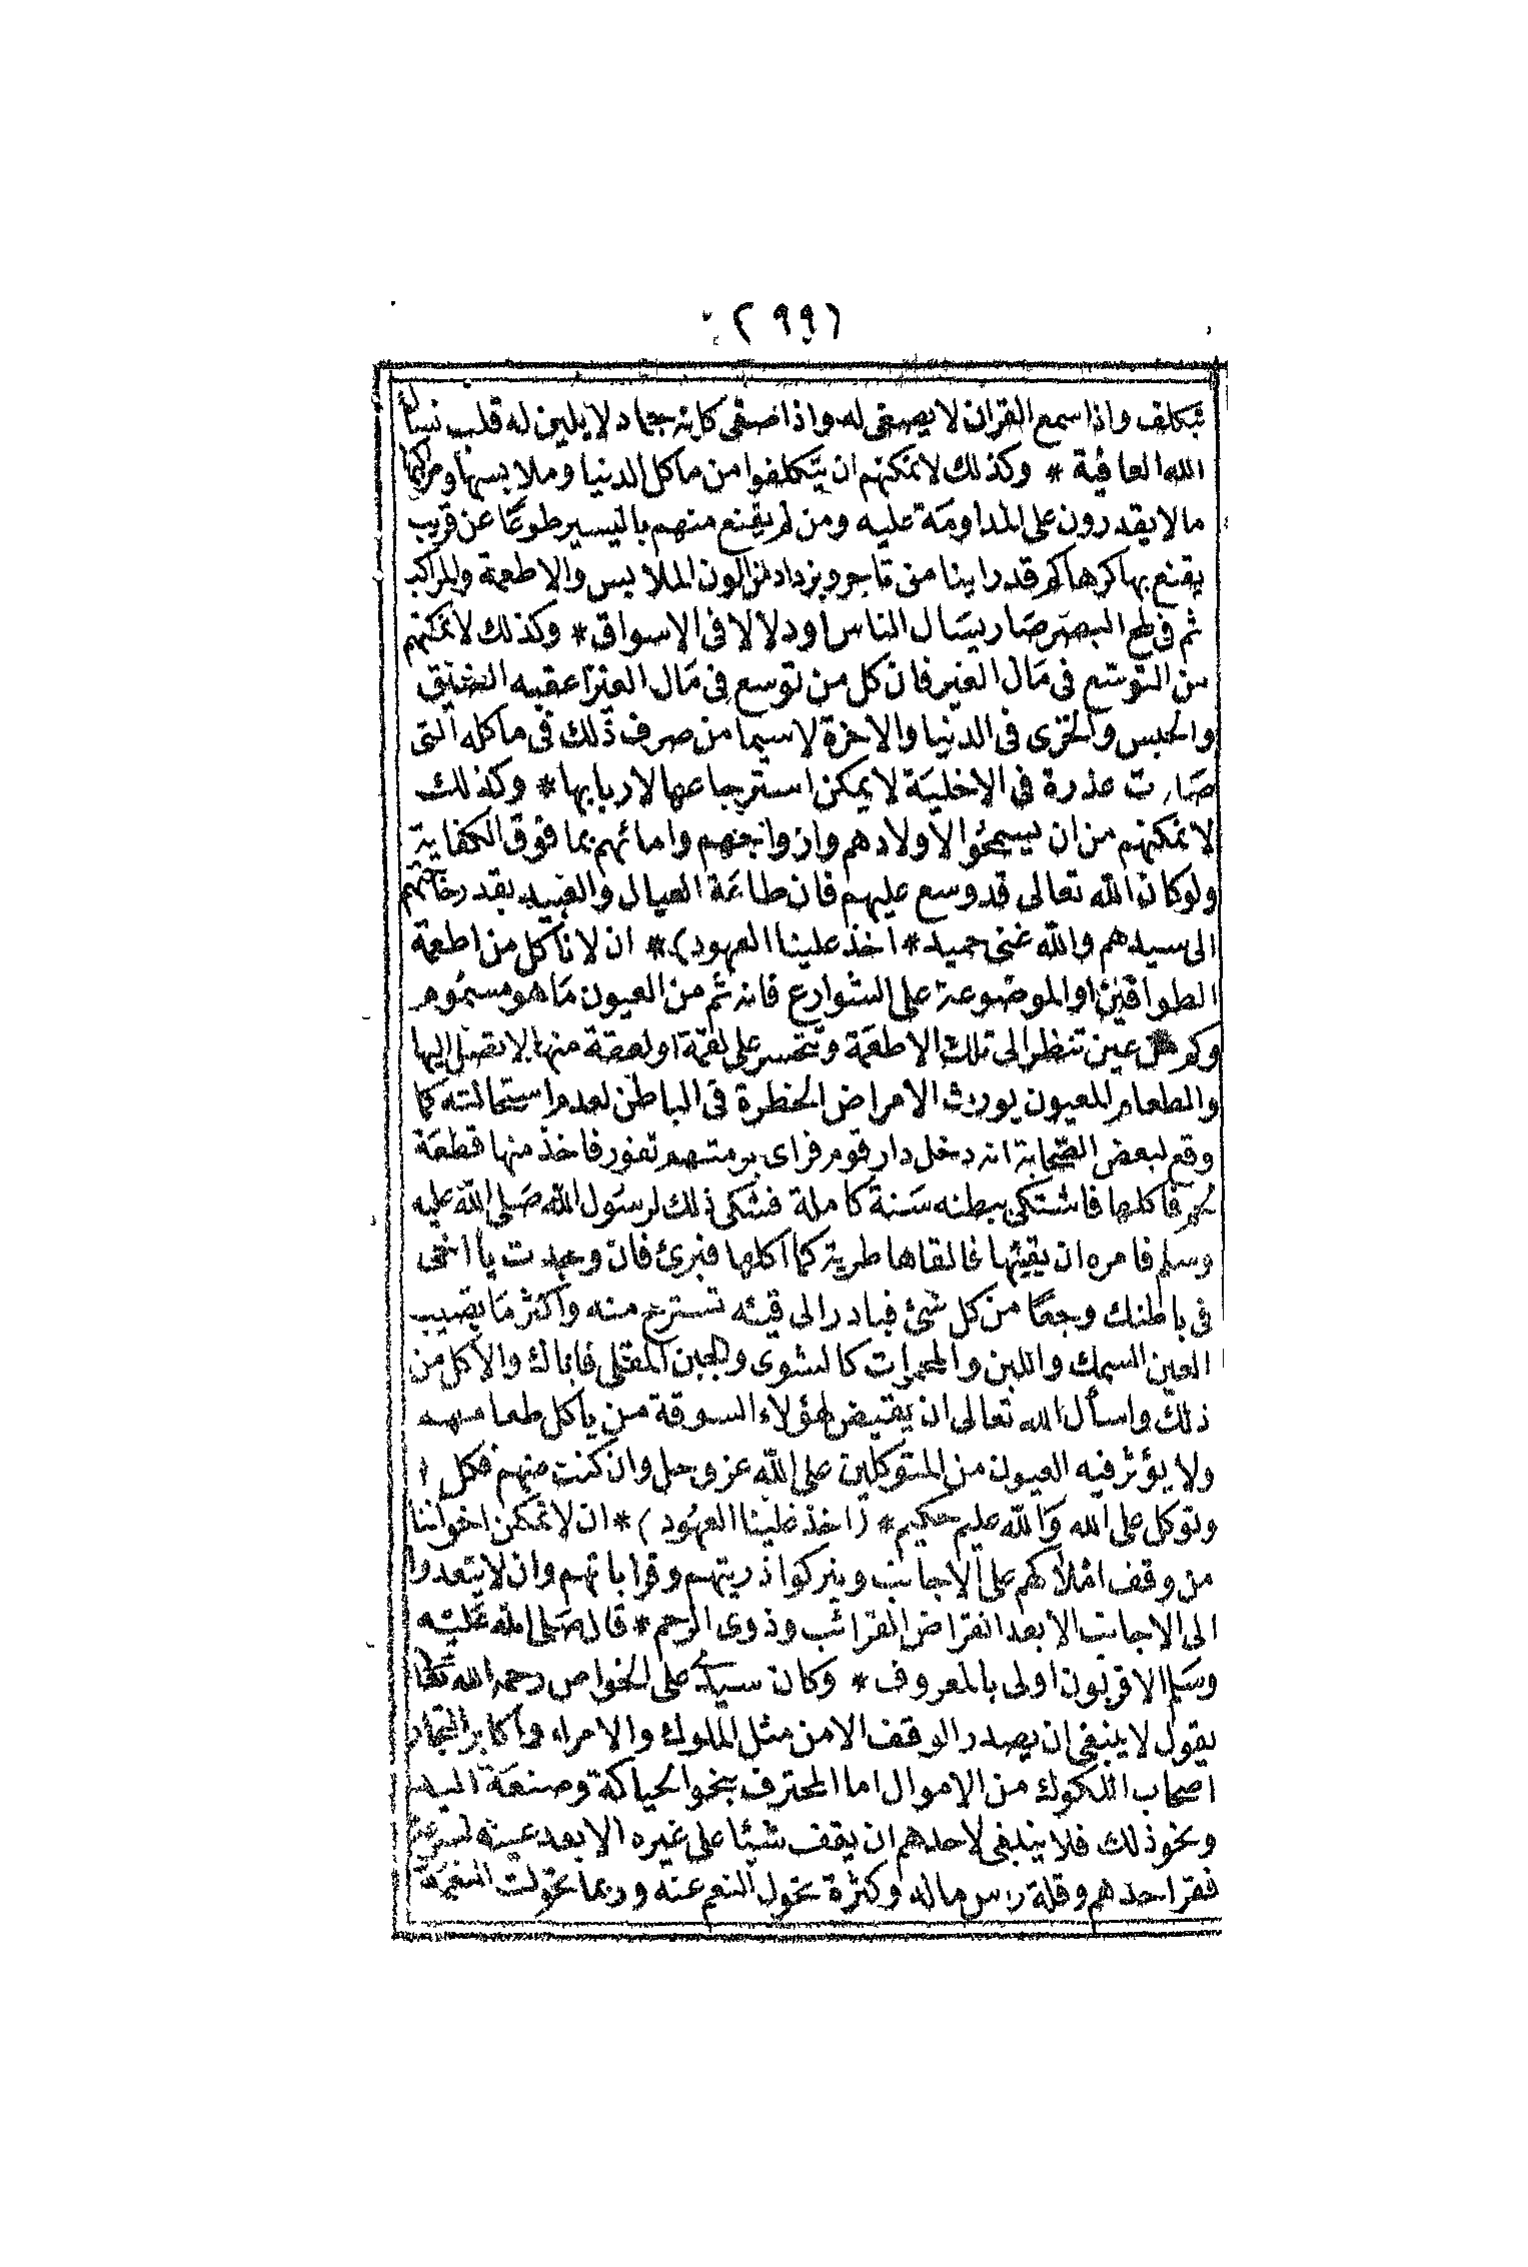 (٢٩٩)
بتكلف واذا سمع القران لا يصغى له واذا صغى كانه جماد لا يلين له قلب نسأل
الله العافية * وكذلك لا نمكنهم ان يتكلفوا من ماكل الدنيا وملابسها ومراكبها
مالا يقدرون على المداومة عليه ومن لم يقنع منهم باليسير طوعًا عن قريب
يقنع بها كرها كم قد راينا من تاجر ويزداد لون الملابس والاطعمة والمراكب
ثم فى لمح البصر صار يسال الناس او دلالا فى الاسواق * وكذلك لا نمكنهم
من التوسع فى مال الغير فان كل من توسع فى مال الغير اعقبه الضيق
والحبس والخزى فى الدنيا والاخرة لا سيما من صرف ذلك فى ماكله التى
صارت عذرة فى الاخلية لا يمكن استرجاعها لاربابها * وكذلك
لا نمكنهم من ان يسمحوا لاولادهم وازواجهم وامائهم بما فوق الكفاية
ولو كان الله تعالى قد وسع عليهم فان طاعة العيال والعبيد بقدر حاجتهم
الى سيدهم والله غنى حميد * اخذ علينا العهود) * ان لا ناكل من اطعمة
الطوافين او الموضوعة على الشوارع فانه ثم من العيون ما هو مسموم
وكم عين تنظر الى تلك الاطعمة وتتحسر على لقمة او لعقة منها لا تصل اليها
والطعام المعيون يورث الامراض الخطرة فى الباطن لعدم استحالته كما
وقع لبعض الصحابة انه دخل دار قوم فراى برمتهم تفور فاخذ منها قطعة
لحم فاكلها فاشتكى ببطنه سنة كاملة فشكى ذلك لرسول الله صلى الله عليه
وسلم فامره ان يقيئها فالقاها طرية كما اكلها فبرئ فان وجدت يا اخى
فى باطنك وجعًا من كل شئ فبادر الى قيئه تسترح منه واكثر ما يصيب
العين السمك واللبن والمحمرات كالشوى والجبن المقلى فاياك والاكل من
ذلك واسأل الله تعالى ان يقيض لهؤلاء السوقة من ياكل طعامهم
ولا يؤثر فيه العيون من المتوكلين على الله عز وجل وان كنت منهم فكل
وتوكل على الله والله عليم حكيم * (اخذ علينا العهود) * ان لا نمكن اخواننا
من وقف املاكهم على الاجانب ويتركوا ذريتهم وقراباتهم وان لا يتعدوا
الى الاجانب الا بعد انقراض القرائب وذوى الرحم * قال صلى الله عليه
وسلم الاقربون اولى بالمعروف * وكان سيدى على الخواص رحمه الله تعالى
يقول لا ينبغى ان يصدر الوقف الا من مثل الملوك والامراء واكابر التجار
اصحاب اللكوك من الاموال اما المحترف بنحو الحياكة وصنعة اليد
ونحو ذلك فلا ينبغى لاحدهم ان يقف شيئا على غيره الا بعد عينه لسرعة
فقر احدهم وقلة راس ماله وكثرة تحول النعم عنه وربما تحولت النعمة